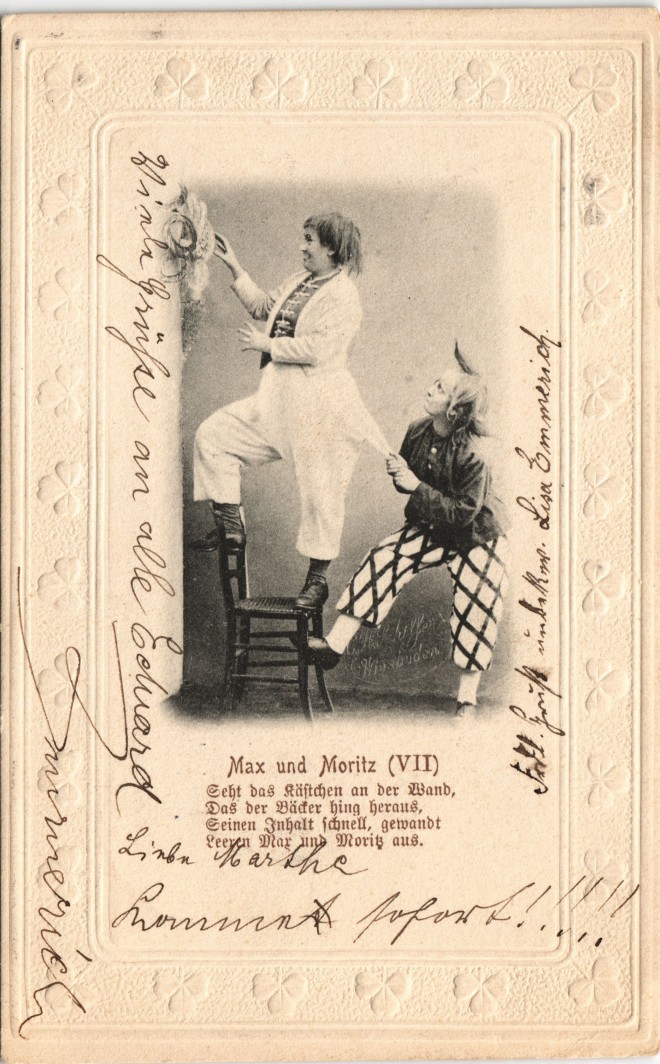 Viele Grüße an alle Eduard
Emmerich
Frdl. Gruß unbekw. Lisa Emmerich.
Wiesbaden
Max und Moritz (VII)
Seht das Kästchen an der Wand,
Das der Bäcker hing heraus,
Seinen Inhalt schnell, gewandt
Leeren Max und Moritz aus.
Liebe Marthe
Kommet sofort!!!!!